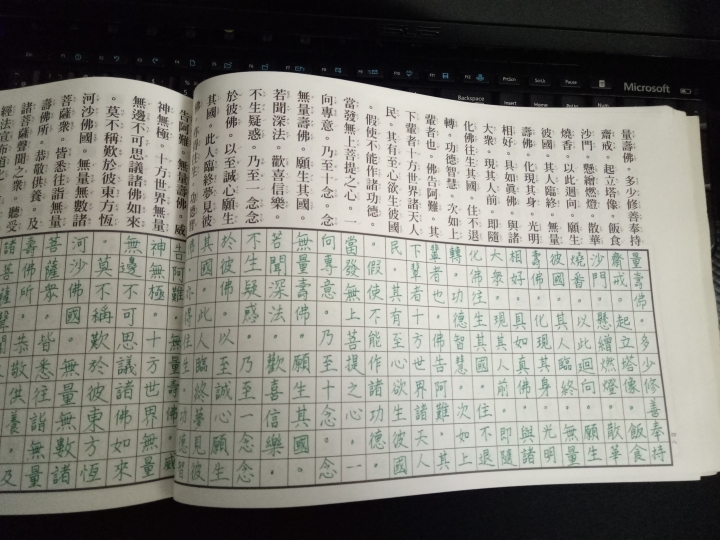 PrtScn
ScrLk
Pause
Microsoft
Backspace
Insert
Home
量壽佛。多少修善奉持
齋戒。起立塔像。飯食
沙門。懸繒燃燈。散華
燒香。以此迴向。願生
彼國。其人臨終。無量
壽佛。化現其身。光明
相好。具如真佛。與諸
大衆。現其人前。即隨
化佛往生其國。住不退
轉。功德智慧。次如上
輩者也。佛告阿難。其
下輩者。十方世界諸天人
民。其有至心欲生彼國
。假使不能作諸功德。
當發無上菩提之心。一
向專意。乃至十念。念
無量壽佛。願生其國。
若聞深法。歡喜信樂。
不生疑惑。乃至一念念
於彼佛。以至誠心願生
其國。此人臨終夢見彼
佛。亦得往生。功德智
告阿難。無量壽佛。威
神無極。十方世界無量
無邊不可思議諸佛如來
。莫不稱歎於彼東方恆
河沙佛國。無量無數諸
菩薩衆。皆悉往詣無量
壽佛所。恭敬供養。及
諸菩薩聲聞之衆。聽受
經法宣布道化
量壽佛。多少修善奉持
齋戒。起立塔像。飯食
沙門。懸繒燃燈。散華
燒香。以此迴向。願生
彼國。其人臨終。無量
壽佛。化現其身。光明
相好。具如真佛。與諸
大衆。現其人前。即隨
化佛往生其國。住不退
轉。功德智慧。次如上
輩者也。佛告阿難。其
下輩者十方世界諸天人
民。其有至心欲生彼國
。假使不能作諸功德。
當發無上菩提之心。一
向專意。乃至十念。念
無量壽佛。願生其國。
若聞深法。歡喜信樂。
不生疑惑。乃至一念念
於彼佛。以至誠心願生
其國。此人臨終夢見彼
佛。亦得往生。功德智
告阿難。無量壽佛。威
神無極。十方世界無量
無邊不可思議諸佛如來
。莫不稱歎於彼東方恆
河沙佛國。無量無數諸
菩薩衆。皆悉往詣無量
壽佛所。恭敬供養。及
諸菩薩聲聞